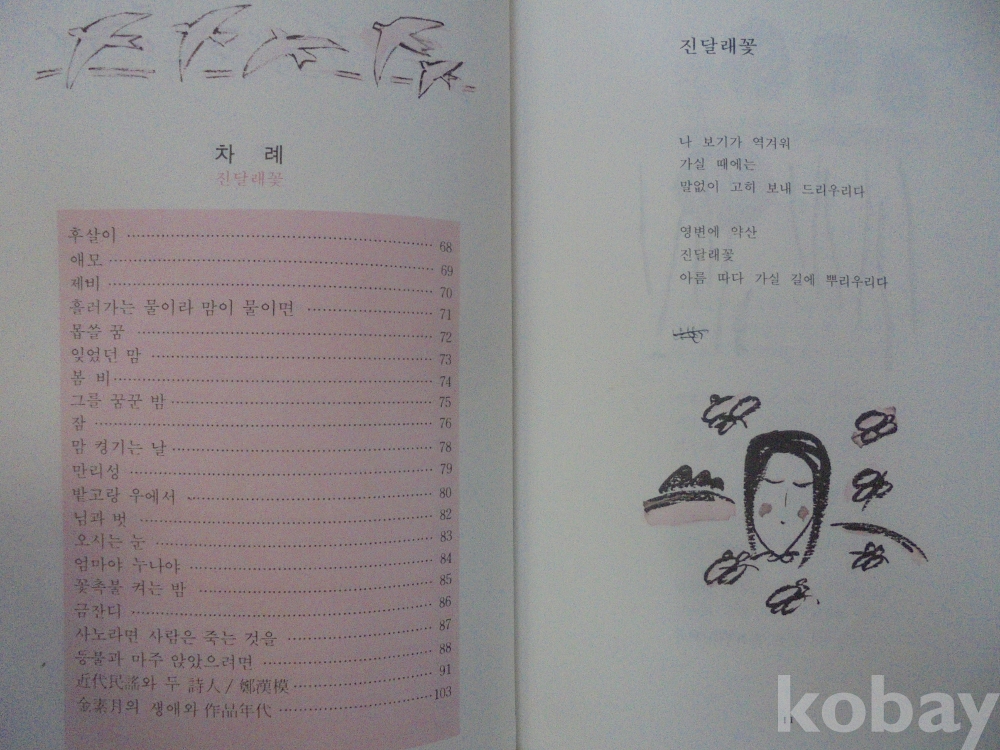 차 례
진달래꽃
후살이 68
애모 69
제비 70
흘러가는 물이라 맘이 물이면 71
몹쓸 꿈 72
잊었던 맘 73
봄 비 74
그를 꿈꾼 밤 75
잠 76
맘 켕기는 날 78
만리성 79
밭고랑 우에서 80
님과 벗 82
오시는 눈 83
엄마야 누나야 84
꽃촉불 켜는 밤 85
금잔디 86
사노라면 사람은 죽는 것을 87
등불과 마주 앉았으려면 88
近代民謠와 두 詩人/鄭漢模 91
金素月의 생애와 作品年代 103
진달래꽃
나 보기가 역겨워
가실 때에는
말없이 고히 보내 드리우리다
영변에 약산
진달래꽃
아름 따다 가실 길에 뿌리우리다
kobay